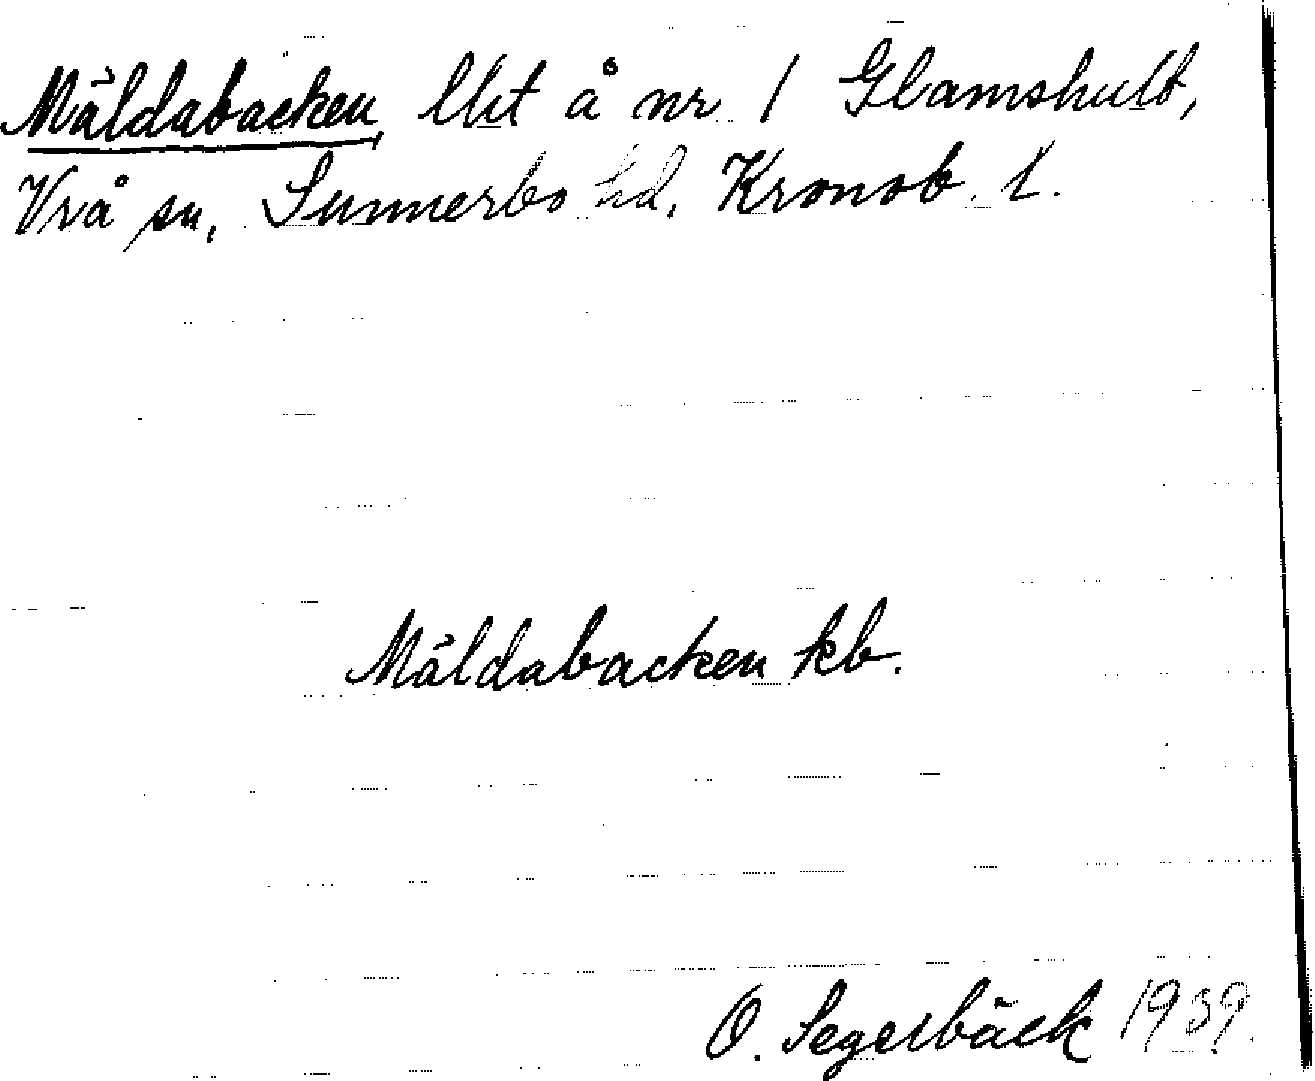 Mäldabacken, lht å nr 1 Glamshult,
Vrå sn, Sunnerbo hd, Kronob. l.
Mäldabacken kb.
O. Segerbäck 1939.